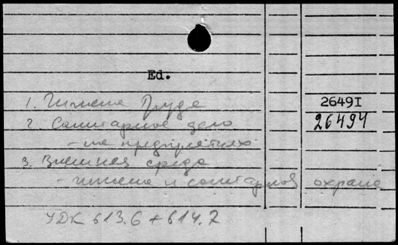 Ed.
1. Гигиена труда 26491
2. Санитарное дело 26494
- на предприятиях
3. Внешняя среда
- гигиена и санитарная охрана
УДК 613.6 + 614.7